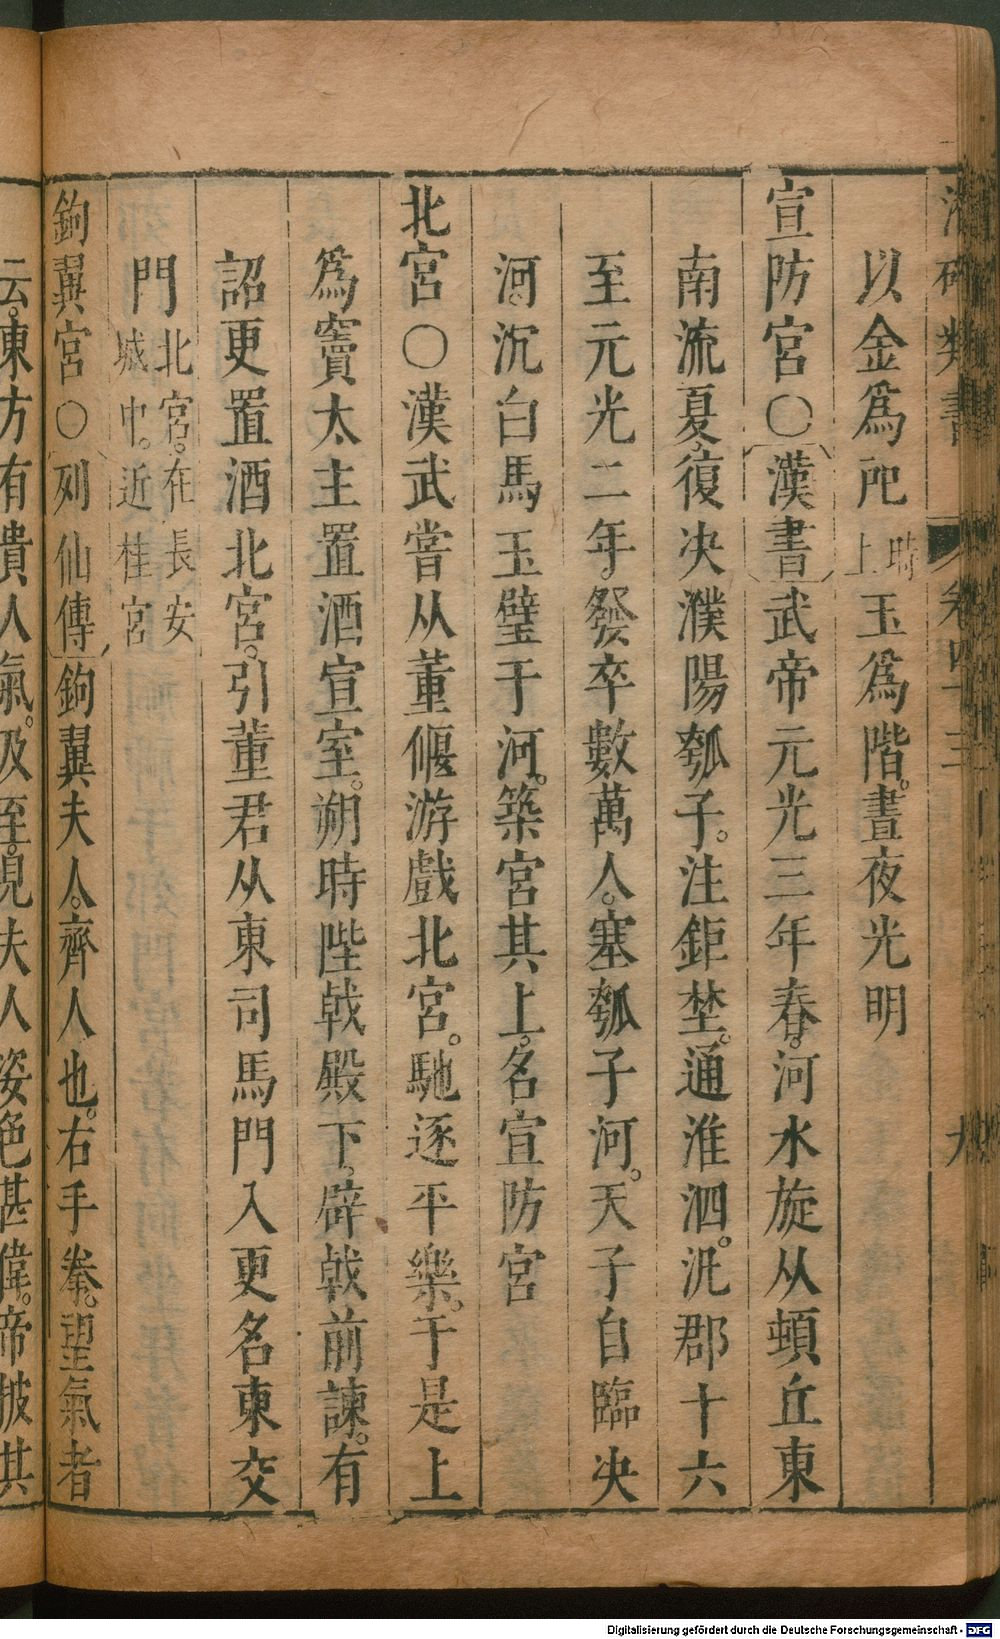 卷四十三
九
以金爲戺上時玉爲階。晝夜光明
宣防宮〇漢書武帝元光三年春。河水旋从頓丘東
南流夏。復決濮陽瓠子。注鉅埜。通淮泗。汎郡十六
至元光二年。發卒數萬人。塞瓠子河。天子自臨決
河。沉白馬玉璧于河。築宮其上。名宣防宮
北宮〇漢武嘗从董偃游戲北宮。馳逐平樂。于是上
爲竇太主置酒宣室。朔時陛戟殿下。辟戟前諫。有
詔更置酒北宮。引董君从東司馬門入更名東交
門北宮。在長安城中。近桂宮
鉤翼宮〇列仙傳鉤翼夫人。齊人也。右手拳。望氣者
云。東方有貴人氣。及至。見夫人姿色甚偉。帝披其
Digitalisierung gefördert durch die Deutsche Forschungsgemeinschaft - DFG